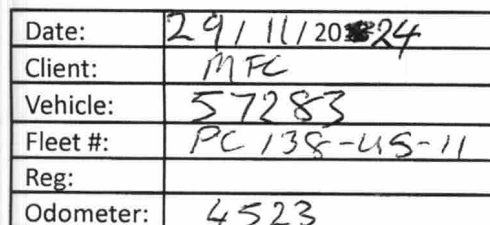 Date: 29/11/2024
Client: MFC
Vehicle: 57283
Fleet #: PC138-US-11
Reg:
Odometer: 4523